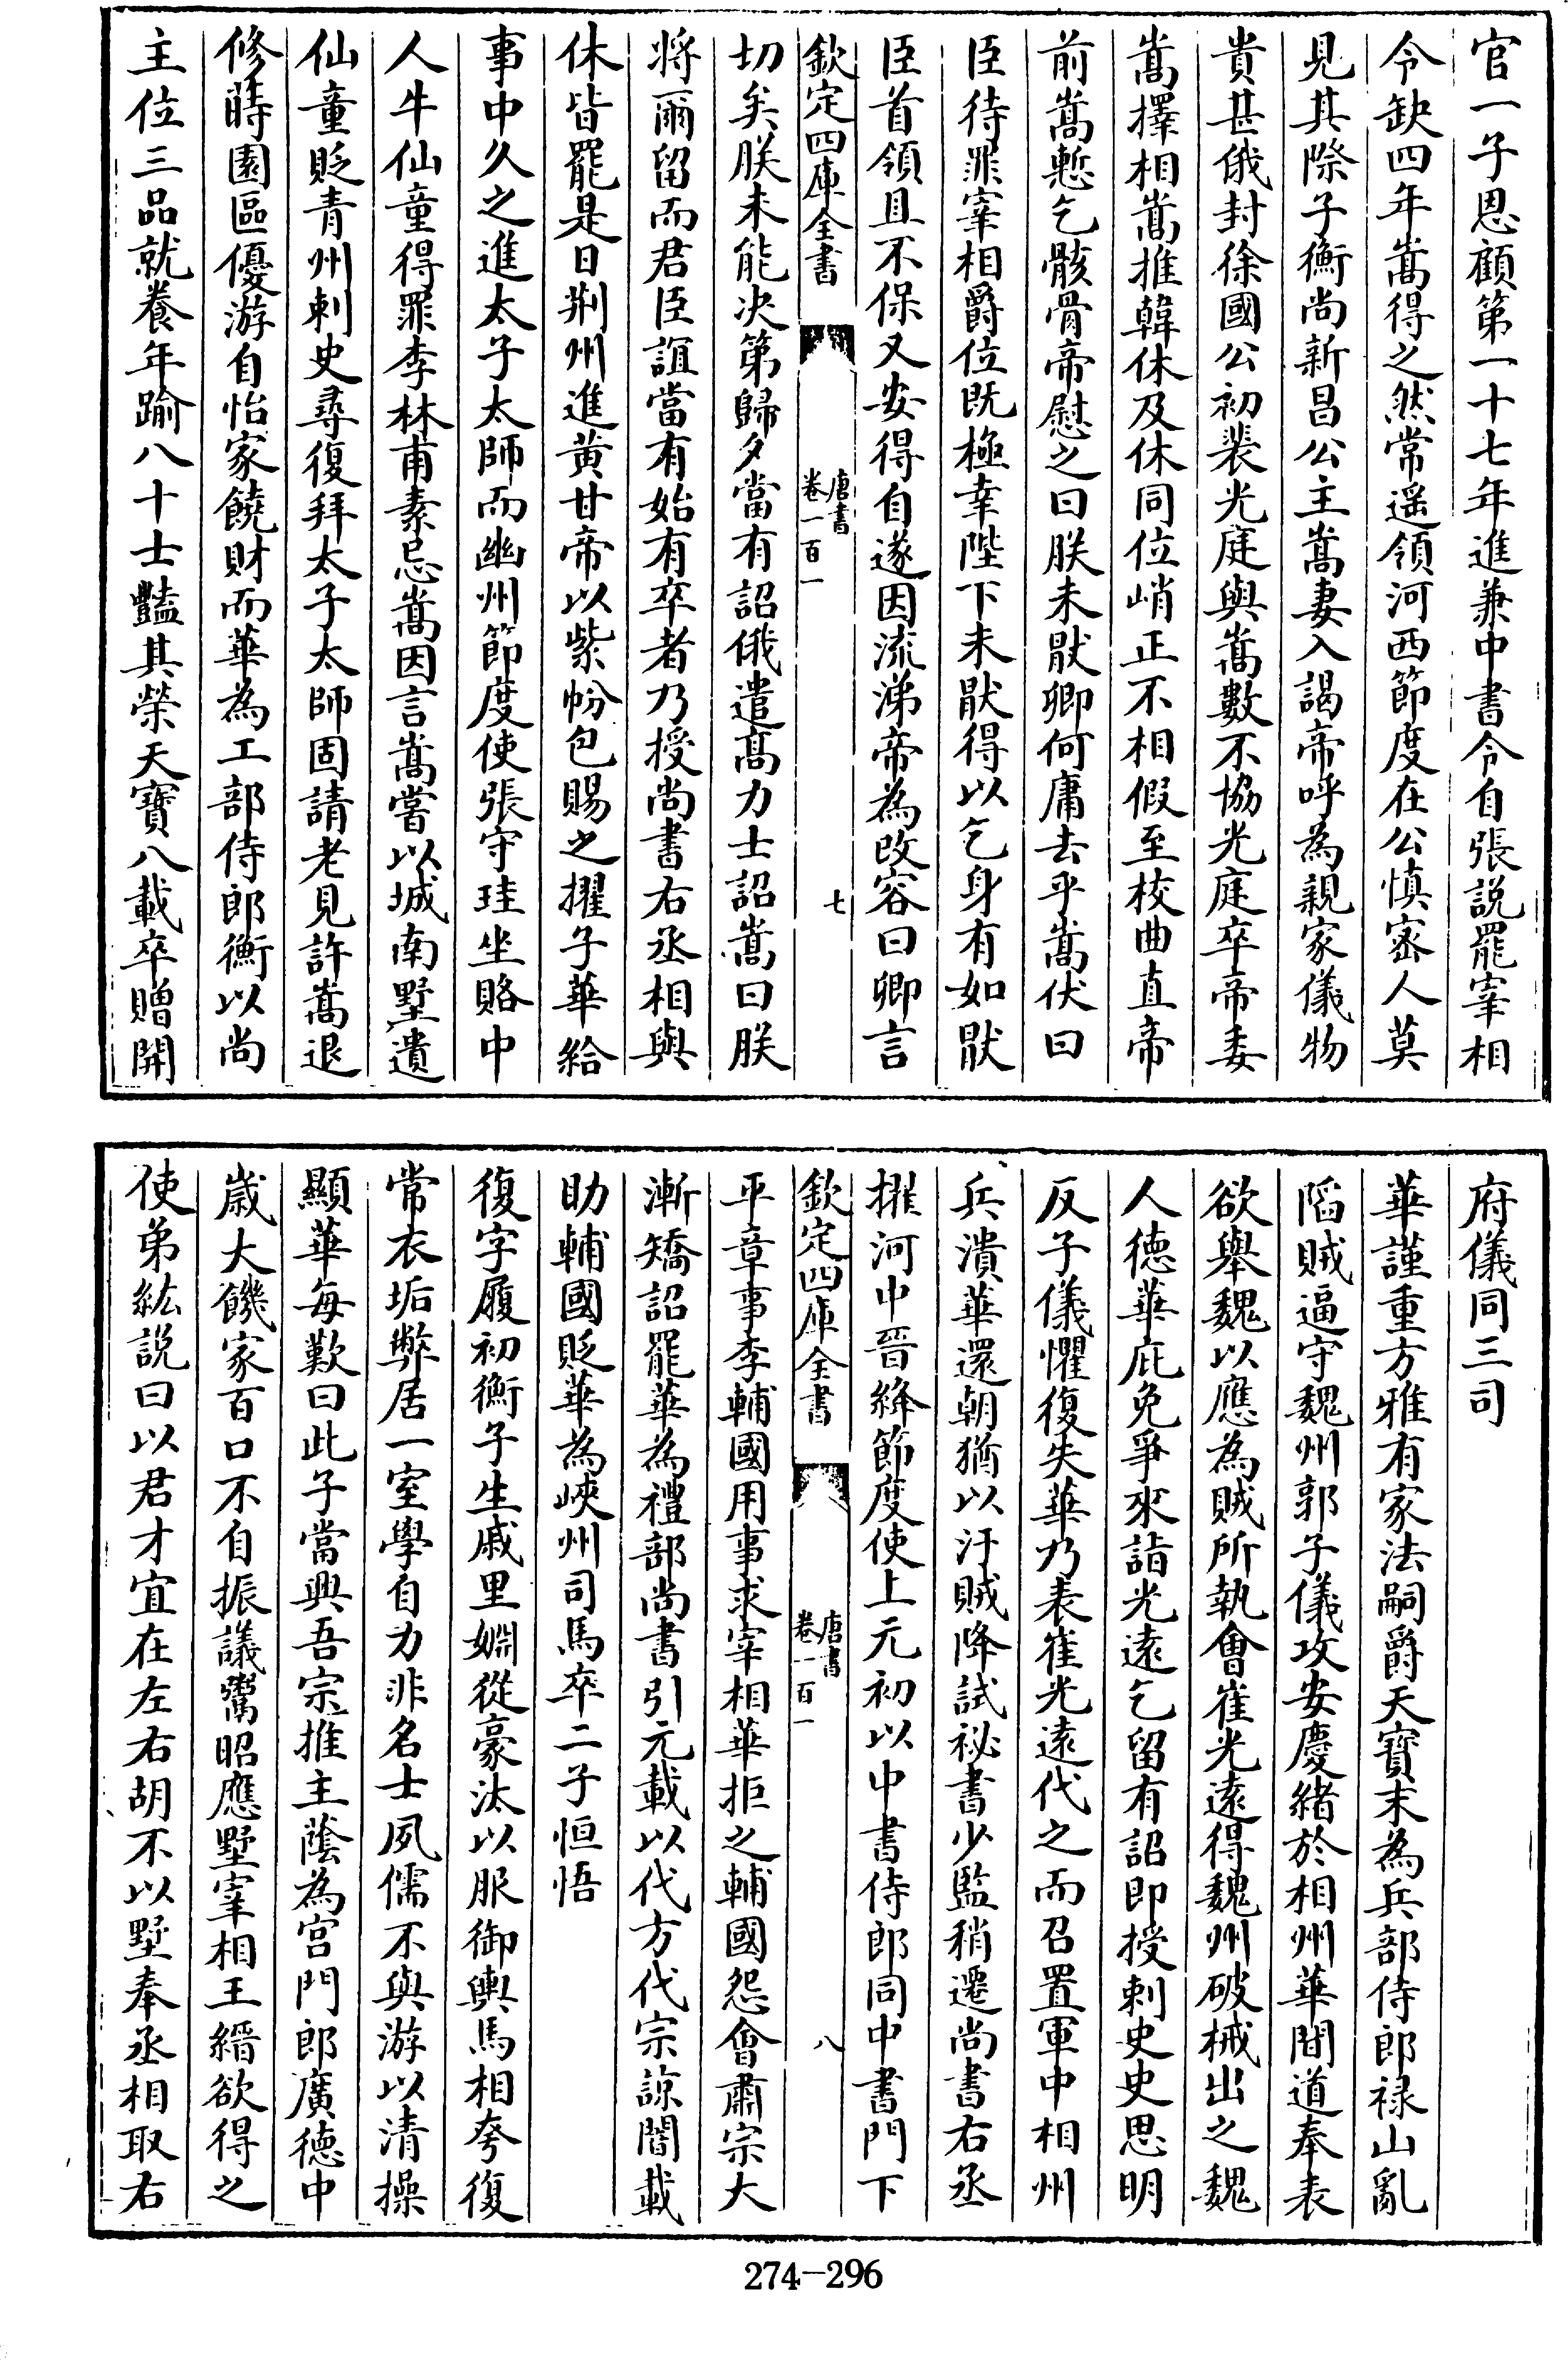 官一子恩顧第一十七年進兼中書令自張説罷宰相
令缺四年嵩得之然常遥領河西節度在公慎宻人莫
見其際子衡尚新昌公主嵩妻入謁帝呼為親家儀物
貴甚俄封徐國公初裴光庭與嵩數不協光庭卒帝委
嵩擇相嵩推韓休及休同位峭正不相假至校曲直帝
前嵩慙乞骸骨帝慰之曰朕未猒卿何庸去乎嵩伏曰
臣待罪宰相爵位既極幸陛下未猒得以乞身有如猒
臣首領且不保又安得自遂因流涕帝為改容曰卿言
欽定四庫全書
唐書
卷一百一
七
切矣朕未能决第歸夕當有詔俄遣髙力士詔嵩曰朕
將爾留而君臣誼當有始有卒者乃授尚書右丞相與
休皆罷是日荆州進黄甘帝以紫帉包賜之擢子華給
事中久之進太子太師而幽州節度使張守珪坐賂中
人牛仙童得罪李林甫素忌嵩因言嵩嘗以城南墅遺
仙童貶青州刺史尋復拜太子太師固請老見許嵩退
修蒔園區優游自怡家饒財而華為工部侍郎衡以尚
主位三品就養年踰八十士豔其榮天寳八載卒贈開
府儀同三司
華謹重方雅有家法嗣爵天寳末為兵部侍郎禄山亂
䧟賊逼守魏州郭子儀攻安慶緒於相州華間道奉表
欲舉魏以應為賊所執會崔光逺得魏州破械出之魏
人徳華庇免爭來詣光逺乞留有詔即授刺史史思明
反子儀懼復失華乃表崔光逺代之而召置軍中相州
兵潰華還朝猶以汙賊降試祕書少監稍遷尚書右丞
擢河中晉絳節度使上元初以中書侍郎同中書門下
欽定四庫全書
唐書
卷一百一
八
平章事李輔國用事求宰相華拒之輔國怨會肅宗大
漸矯詔罷華為禮部尚書引元載以代方代宗諒闇載
助輔國貶華為峽州司馬卒二子恒悟
復字履初衡子生戚里姻從豪汰以服御輿馬相夸復
常衣垢弊居一室學自力非名士夙儒不與游以清操
顯華每歎曰此子當興吾宗推主蔭為宫門郎廣徳中
歳大饑家百口不自振議鬻昭應墅宰相王縉欲得之
使弟紘説曰以君才宜在左右胡不以墅奉丞相取右
274-296